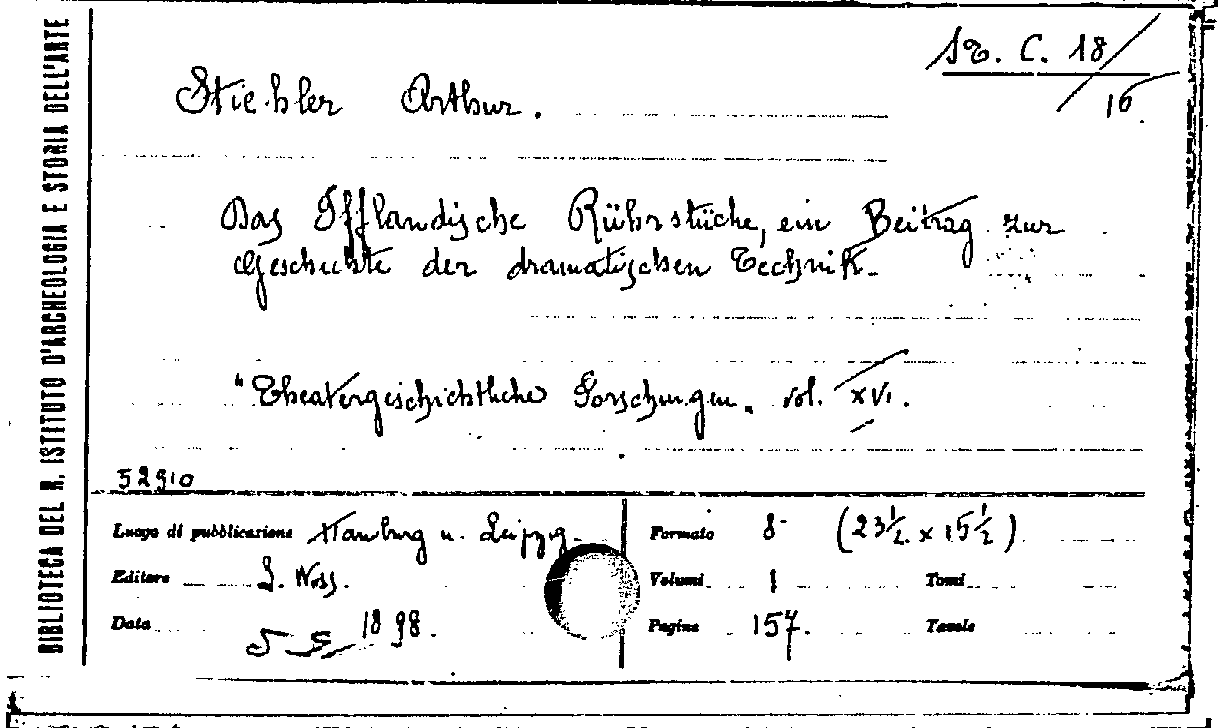 BIBLIOTECA DEL R. ISTITUTO D'ARCHEOLOGIA E STORIA DELL'ARTE
St. C. 18/16
Stiehler Arthur.
Das Ifflandische Rührstüche, ein Beitrag zur
Geschichte der dramatischen Technik.
"Theatergeschichtliche Forschungen" vol. XVI.
52910
Luogo di pubblicazione Hamburg u. Leipzig
Editore L. Voss.
Data 1898.
Formato 8° (23½ x 15½)
Volumi 1 Tomi
Pagine 157. Tavole